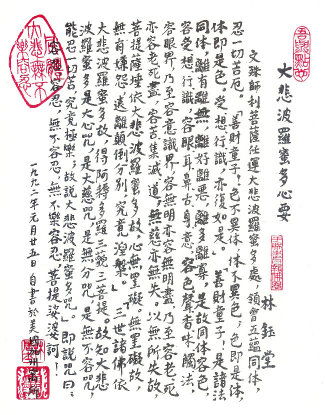 大悲波羅蜜多心要
林鈺堂
文殊師利菩薩任運大悲波羅蜜多處,領會五蘊同体,
忍一切苦厄。「善財童子,色不異体,体不異色,色即是体,
体即是色,受想行識,亦復如是。」「善財童子,是諸法
同体,離有離無,離好離惡,離多離尊,是故同体容色,
容受想行識,容眼耳鼻舌身意,容色聲香味觸法,
容眼界乃至容意識界,容無明亦容無明盡,乃至容老死
亦容老死盡,容苦集滅道,無慈亦無失。以無所失故,
菩提薩埵依大悲波羅蜜多故,心無罣礙。無罣礙故,
無有嫌怨,遠離顛倒分別,究竟涅槃。」「三世諸佛依
大悲波羅蜜多故,得阿耨多羅三藐三菩提。故知大悲
波羅蜜多,是大心咒,是大慈咒,是無分咒,是無不容咒,
能忍一切苦,究竟極樂。故說大悲波羅蜜多咒。」即說咒曰:
容忍,無不容忍,無不樂容忍,菩提娑婆訶!
一九九二年元月廿五日自書於美